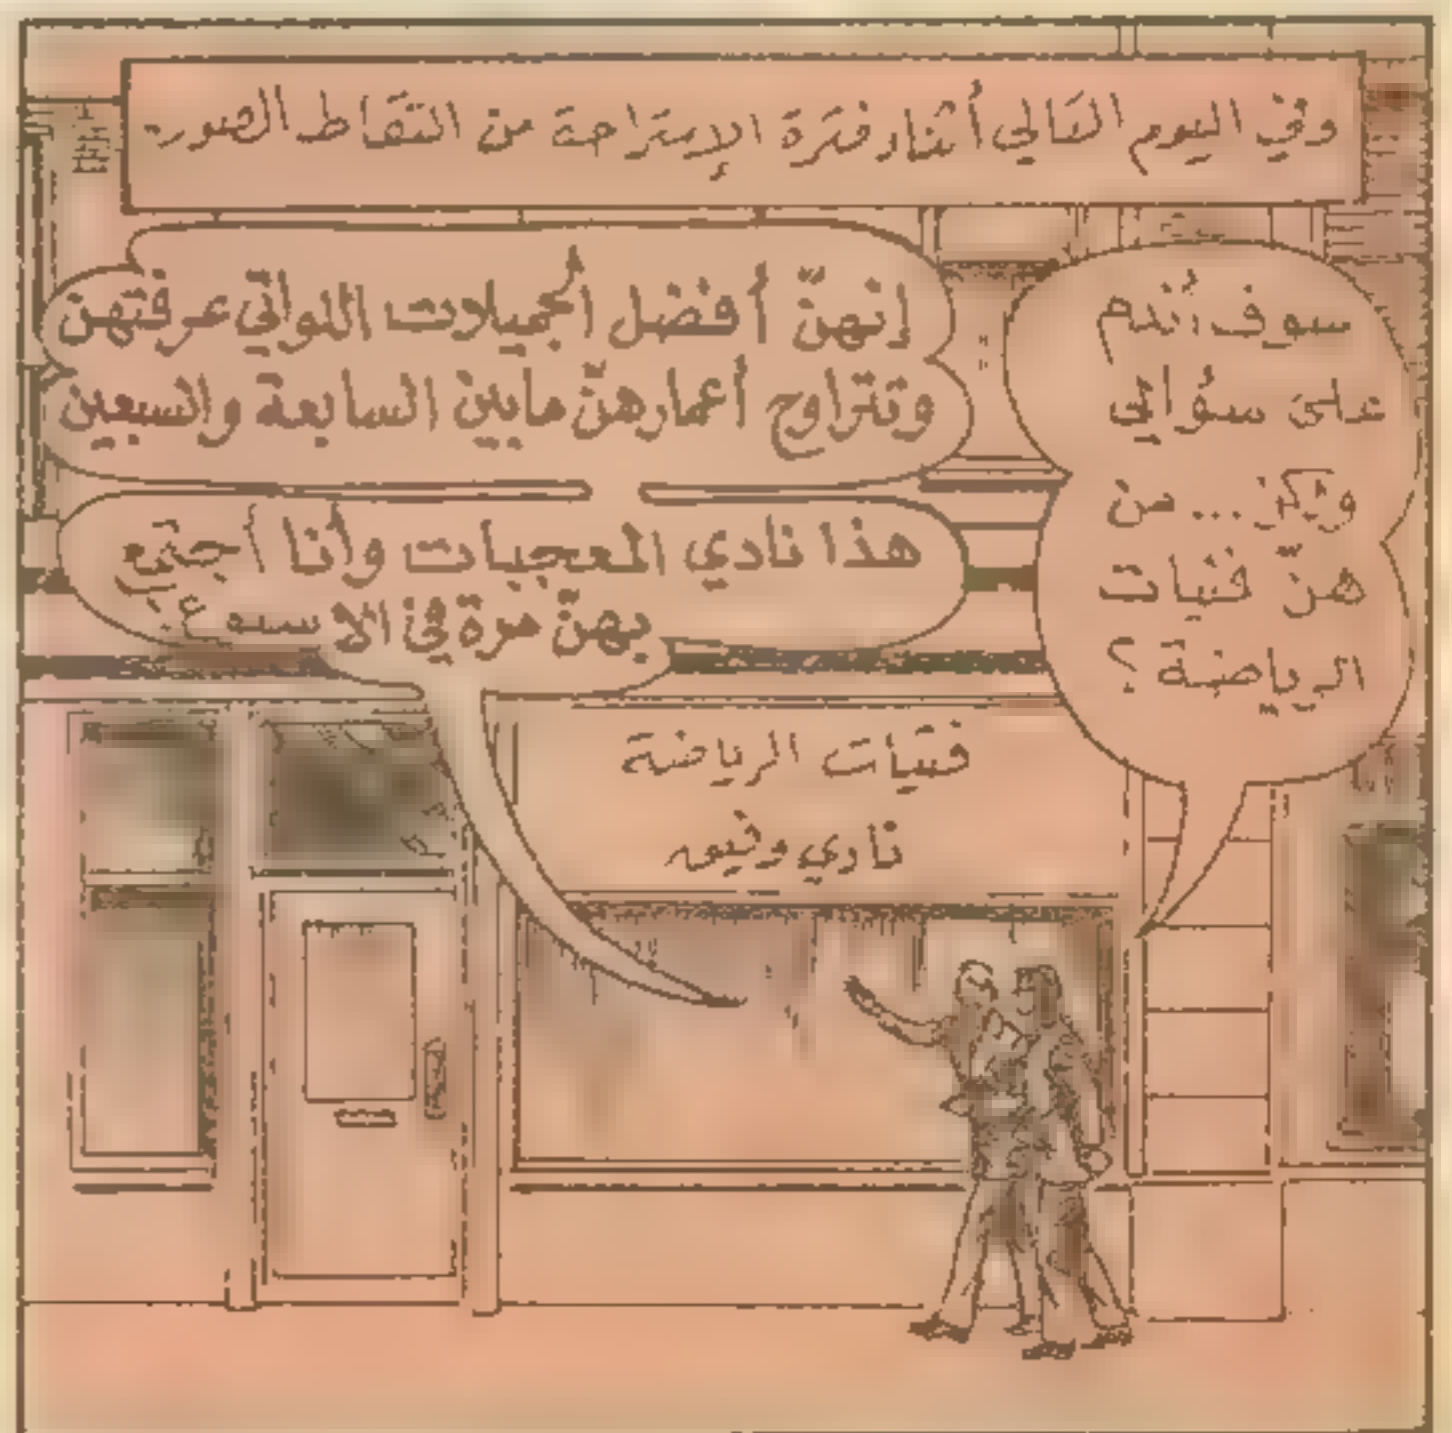 وفي اليوم التالي أثناء فترة الإستراحة من التقاط الصور
سوف أندم
على سؤالي
ولكن... من
هنّ فتيات
الرياضة ؟
إنهنّ أفضل الجميلات اللواتي عرفتهن
وتتراوح أعمارهنّ مابين السابعة والسبعين
هذا نادي المعجبات وأنا أجتمع
بهنّ مرة في الاسبوع
فتيات الرياضة
نادي